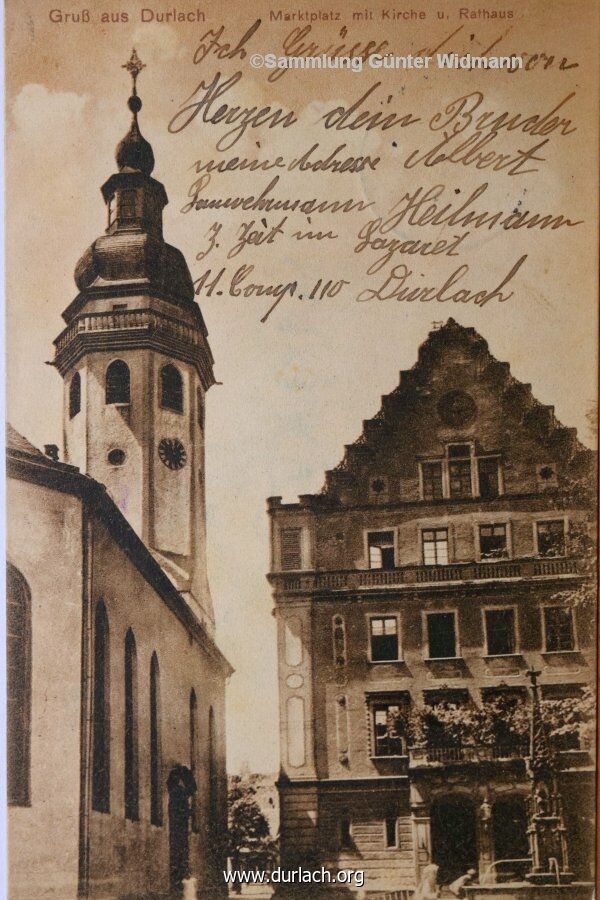 Gruß aus Durlach
Marktplatz mit Kirche u. Rathaus
©Sammlung Günter Widmann
Ich Grüsse dich von
Herzen dein Bruder
meine Adresse Albert
Landwehrmann Heilmann
z. Zeit im Lazaret
11. Comp. 110 Durlach
www.durlach.org